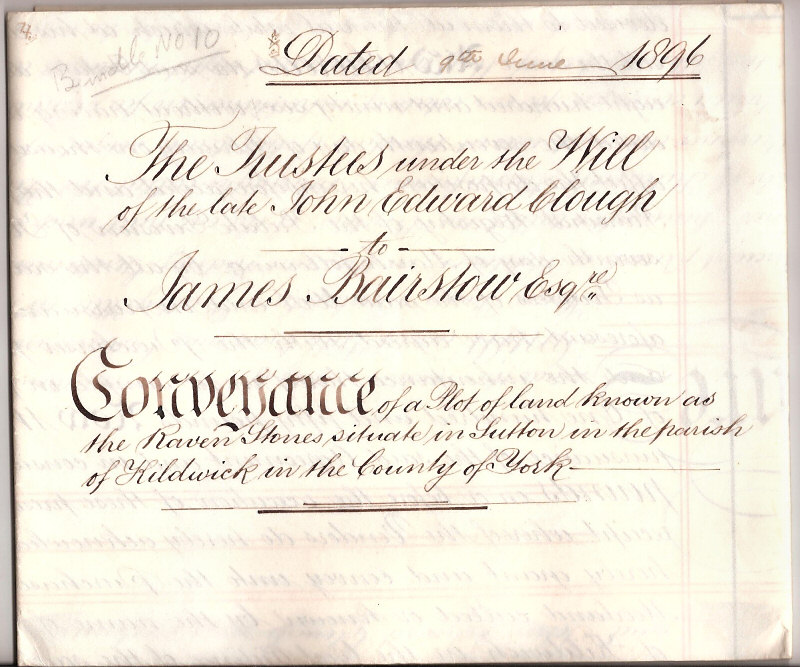 Bundle No 10
Dated 9th June 1896
The Trustees under the Will
of the late John Edward Clough
to
James Bairstow Esqre
Conveyance of a Plot of land known as
the Raven Stones situate in Sutton in the parish
of Kildwick in the County of York